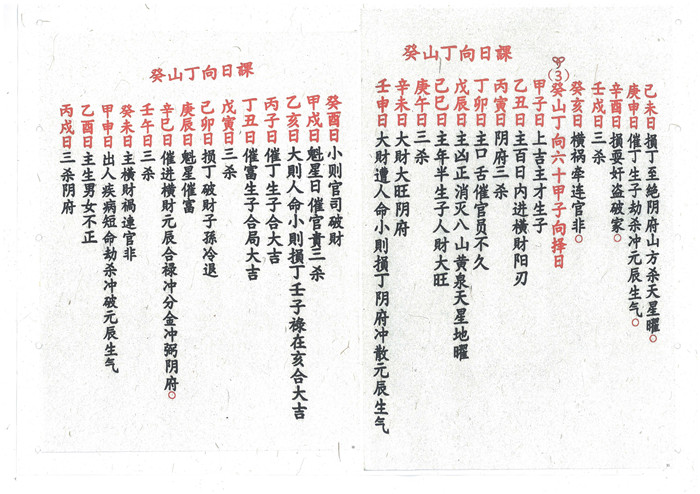 癸山丁向日課
己未日損丁至绝阴府山方杀天星曜。
庚申日催丁生子劫杀冲元辰生气。
辛酉日損耍奸盗破家。
壬戌日三杀
癸亥日横祸牵连官非。
(3)癸山丁向六十甲子向择日
甲子日上吉主才生子
乙丑日主百日内进横財阳刃
丙寅日阴府三杀
丁卯日主口舌催官员不久
戊辰日主凶正消灭八山黄泉天星地曜
己巳日主年半生子人財大旺
庚午日三杀
辛未日大財大旺阴府
壬申日大財遭人命小则損丁阴府冲散元辰生气
癸山丁向日課
癸酉日小则官司破財
甲戌日魁星日催官貴三杀
乙亥日大则人命小则損丁壬子祿在亥合大吉
丙子日催丁生子合大吉
丁丑日催富生子合局大吉
戊寅日三杀
己卯日损丁破財子孫冷退
庚辰日魁星催富
辛巳日催进横財元辰合禄冲分金冲弼阴府。
壬午日三杀
癸未日主横財禍連官非
甲申日出人疾病短命劫杀冲破元辰生气
乙酉日主生男女不正
丙戌日三杀阴府